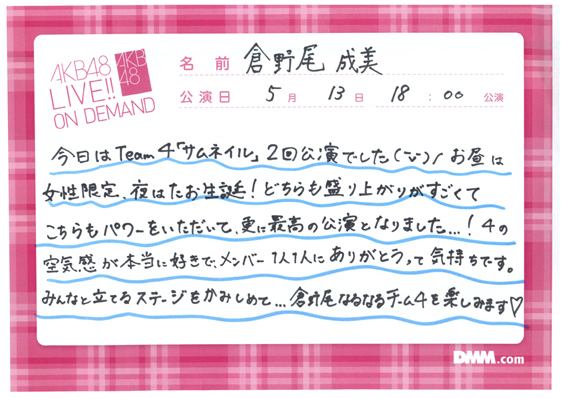 AKB48
LIVE!!
ON DEMAND
AKB
48
名前 倉野尾 成美
公演日 5月 13日 18:00 公演
今日はTeam 4「サムネイル」2回公演でした(ˇ▿ˇ)/ お昼は
女性限定、夜はたお生誕!どちらも盛り上がりがすごくて
こちらもパワーをいただいて、更に最高の公演となりました...!4の
空気感が本当に好きで、メンバー1人1人にありがとうって気持ちです。
みんなと立てるステージをかみしめて... 倉野尾なるなるチーム4を楽しみます♡
DMM.com